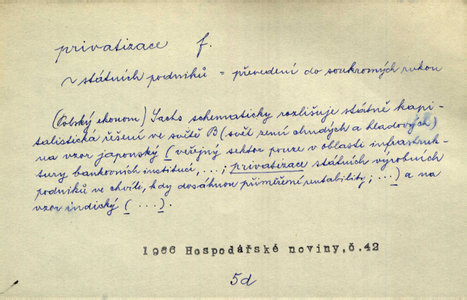 privatizace f.
~ státních podniků = převedení do soukromých rukou
(Polský ekonom) Sachs schematicky rozlišuje státně kapi-
talistická řešení ve světě B (svět zemí chudých a hladových)
na vzor japonský (veřejný sektor pouze v oblasti infrastruk-
tury bankovních institucí, ...; privatizace státních výrobních
podniků ve chvíli, kdy dosáhnou přiměřené rentability; ...) a na
vzor indický (...).
1966 Hospodářské noviny, č. 42
5d